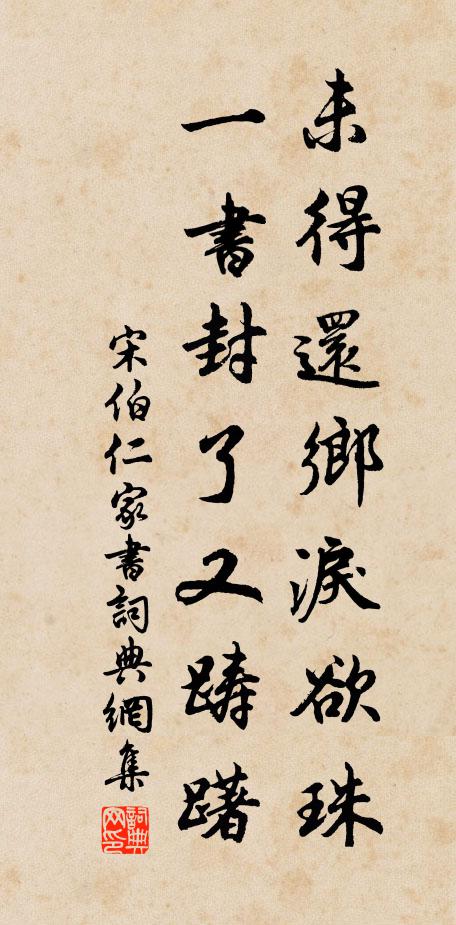 未得還鄉淚欲珠
一書封了又躊躇
宋伯仁家書詞典網集
詞典网印